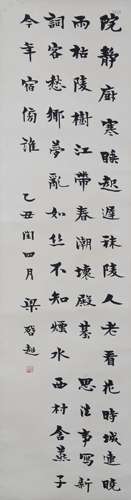 院靜廚寒睡起遲秣陵人老看花時城連曉
雨枯陵樹江帶春潮壞殿基 思往事寫新
詞客愁鄉夢亂如絲不知煙水西村舍燕子
今年宿傍誰 乙丑閏四月 梁啓超